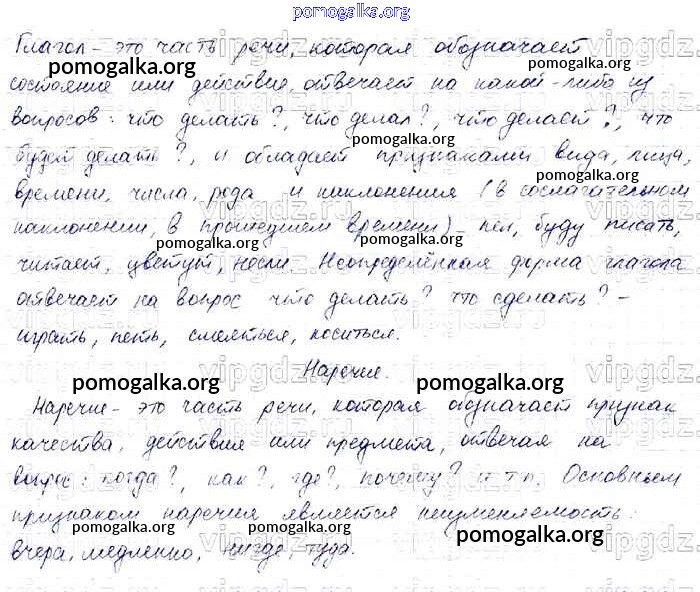 pomogalka.org
Глагол - это часть речи, которая обозначает
состояние или действие, отвечает на какой-либо из
вопросов: что делать?, что делал?, что делает?, что
будет делать?, и обладает признаками вида, лица,
времени, числа, рода и наклонения (в сослагательном
наклонении, в прошедшем времени) - пел, буду писать,
читает, цветут, несли. Неопределённая форма глагола
отвечает на вопрос что делать? что сделать? -
играть, петь, смеяться, носиться.
Наречие.
Наречие - это часть речи, которая обозначает признак
качества, действия или предмета, отвечая на
вопрос: когда?, как?, где?, почему? и т п. Основным
признаком наречия является неизменяемость:
вчера, медленно, нигде, туда.